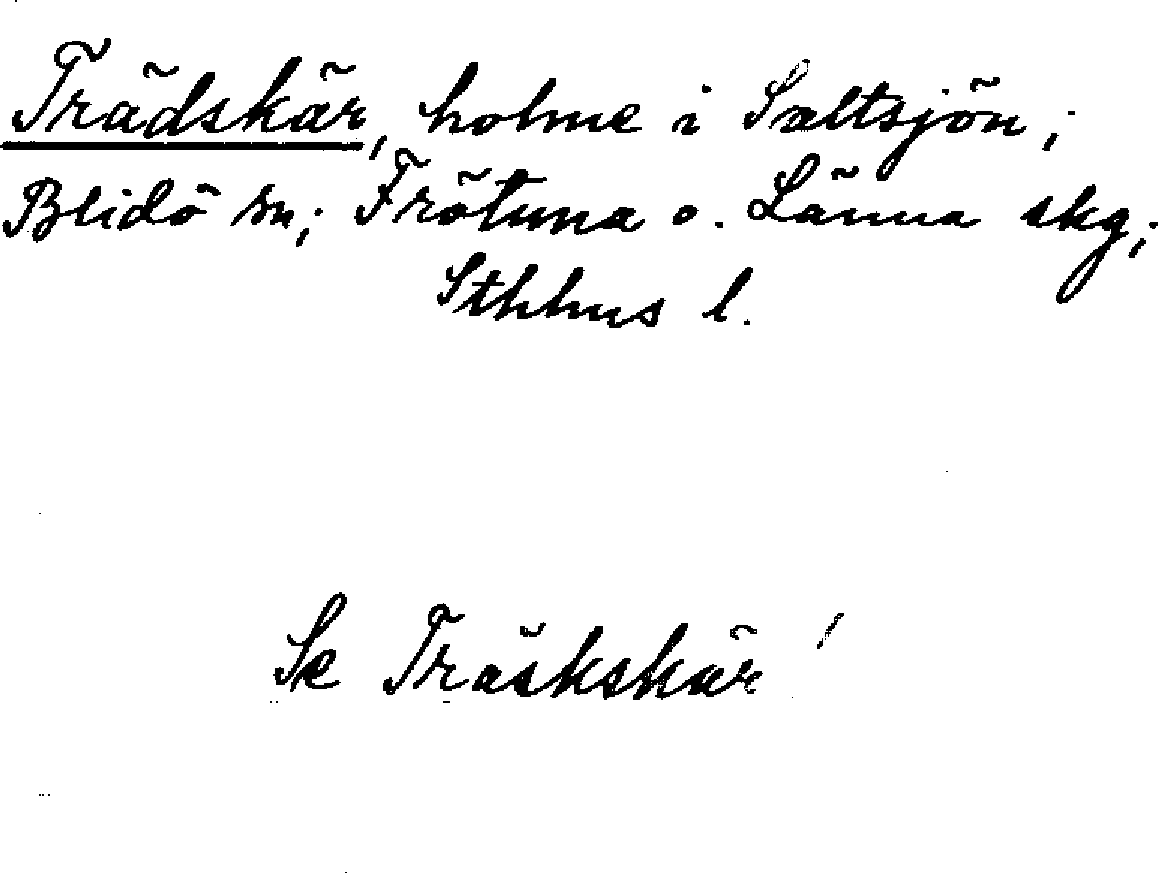 Trädskär, holme i Saltsjön;
Blidö sn; Frötuna o. Länna skg;
Sthhus l.
Se Träskskär!